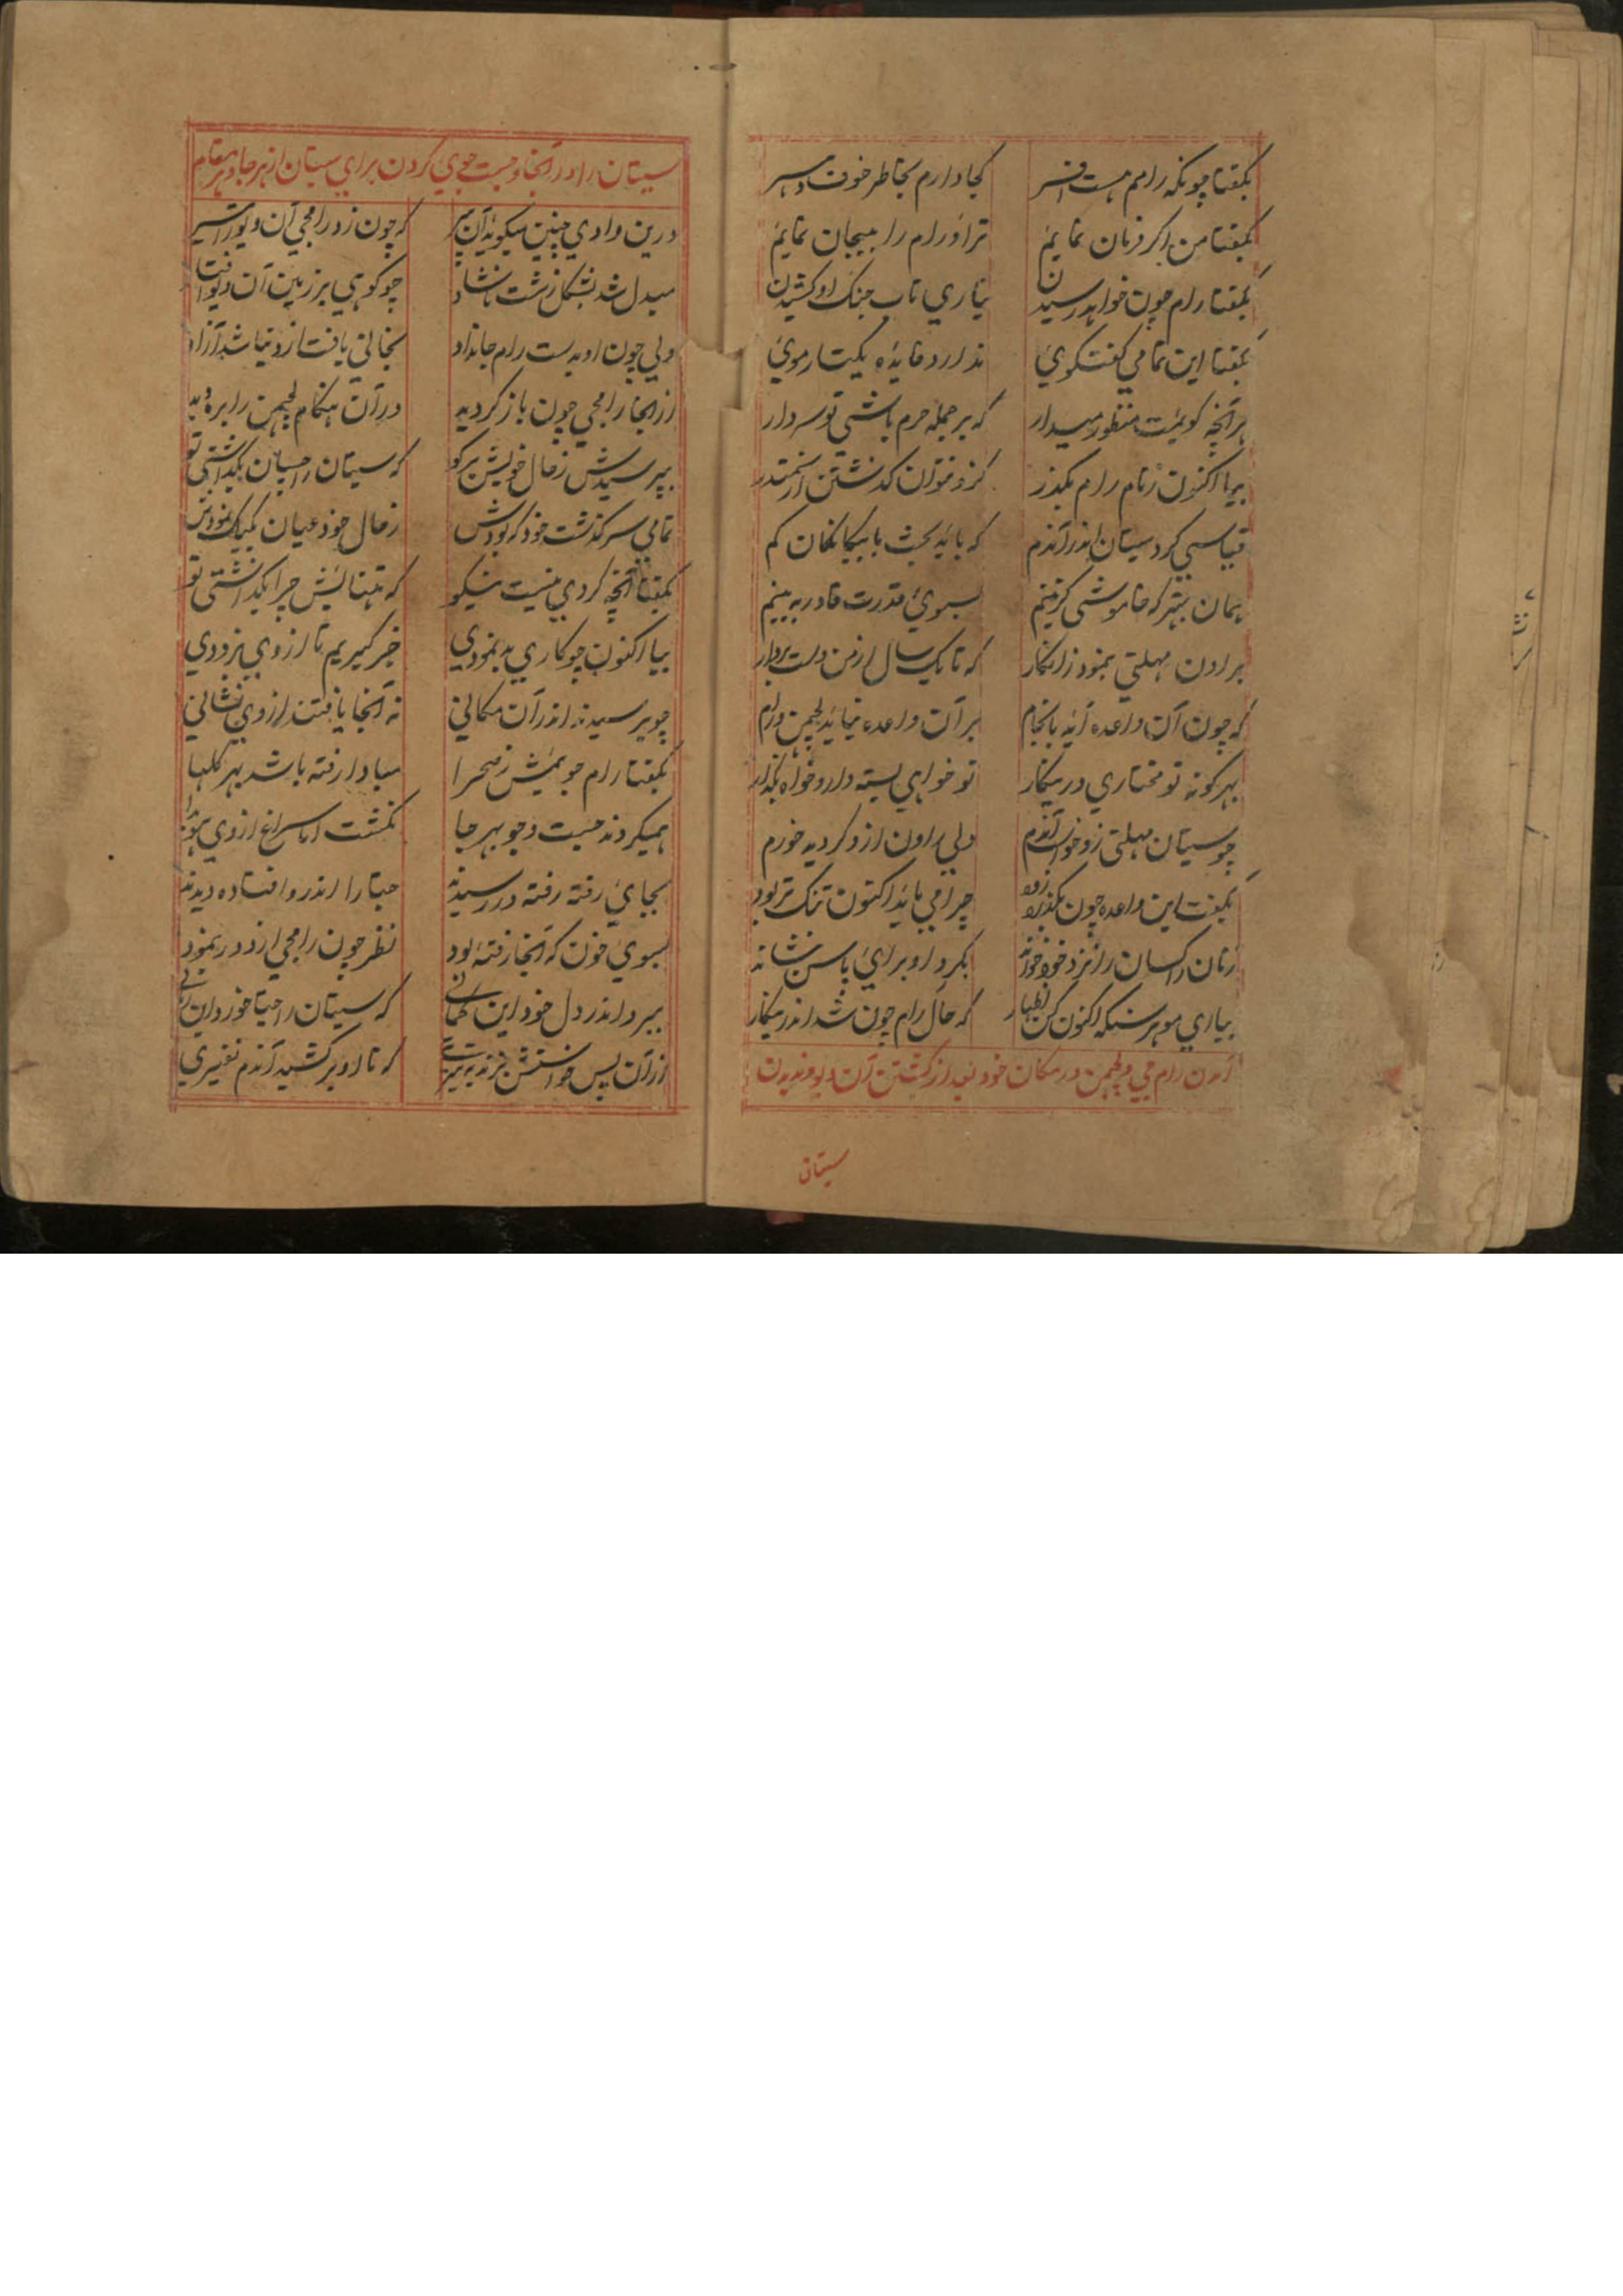 بگفتا چونکه رامم هست افسر کجا دارم بخاطر خوف دهسر
بگفتا من اگر فرمان نمایم ترا و رام را بیجان نمایم
بگفتا رام چون خواهد رسیدن نیاری تاب جنک او کشیدن
بگفتا این تمامی کفتکوئی ندارد فایده یکتار موئی
هر آنچه کویمت منظور میدار که بر جمله حرم باشی تو سردار
بیا اکنون ز نام رام بکذر کزو نتوان کذشتن
قیاسی کرد سیتان اندر آندم که باید بحث با بیکانکان کم
همان بهتر که خاموشی کزینم بسوی قدرت قادر به بینم
براون مهلتی بنمود زانکار که تا یک سال از من دست بردار
که چون آن واعده آید بانجام بر آن واعده نیاید لچمن و رام
بهر کونه تو مختاری درینکار تو خواهی بسته دار و خواه بکذار
چو سیتان مهلتی زو خواست آندم ولی راون ازو کردید خورم
بگفت این واعده چون بکذرد زود چرا می باید اکنون تنک تر بود
زنان راکسان را نزد خود خواند بکرد او برای پاس نشاند
بیاری موهر سنکه اکنون کن اظهار که حال رام چون شد اندرینکار
آمدن رام جی و لچمن در مکان خود بعد از کشتن آن دیو و ندیدن
سیتان
سیتان را در آنجا و جست جوی کردن برای سیتان از هر جا و هر مقام
درین وادی چنین میکوید آن پیر که چون زد رامجی آن دیو را تیر
مبدل شد بشکل زشت ناشاد چو کوهی بر زمین آن دیو افتاد
ولی چون او بدست رام جانداد نجاتی یافت از دنیا شد آزاد
از آنجا رامجی چون باز کردید در آن هنکام لچمن را بره دید
بپرسیدش ز حال خویش برکو که سیتان را چسان بکذاشتی تو
تمامی سرکذشت خود که بودش ز حال خود عیان یک یک نمودش
بگفتا آنچه کردی نیست نیکو که تنهایش چرا بکذاشتی تو
بیا اکنون چو کاری بد نمودی خبر گیریم تا از وی بزودی
چو پرسیدند اندر آن مکانی نه آنجا یافتند از وی نشانی
بگفتا رام جوئیمش ز صحرا مبادا رفته باشد بهر کلها
همیکردند جست و جو بهر جا نکشت اما سراغ از وی هویدا
بجای رفته رفته در رسیدند جتا را اندر او افتاده دیدند
بسوی خون که آنجا رفته بود نظر چون رامجی از دور بنمود
ببرد اندر دل خود این کمانی که سیتان را جتا خورد این زمانی
از آن پس خواستش بزند تیری که تا او برکشید آندم نفیری